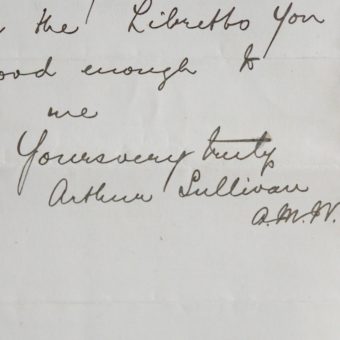 the Libretto You
ood enough to
me
Yours very truly
Arthur Sullivan
A.M.W.